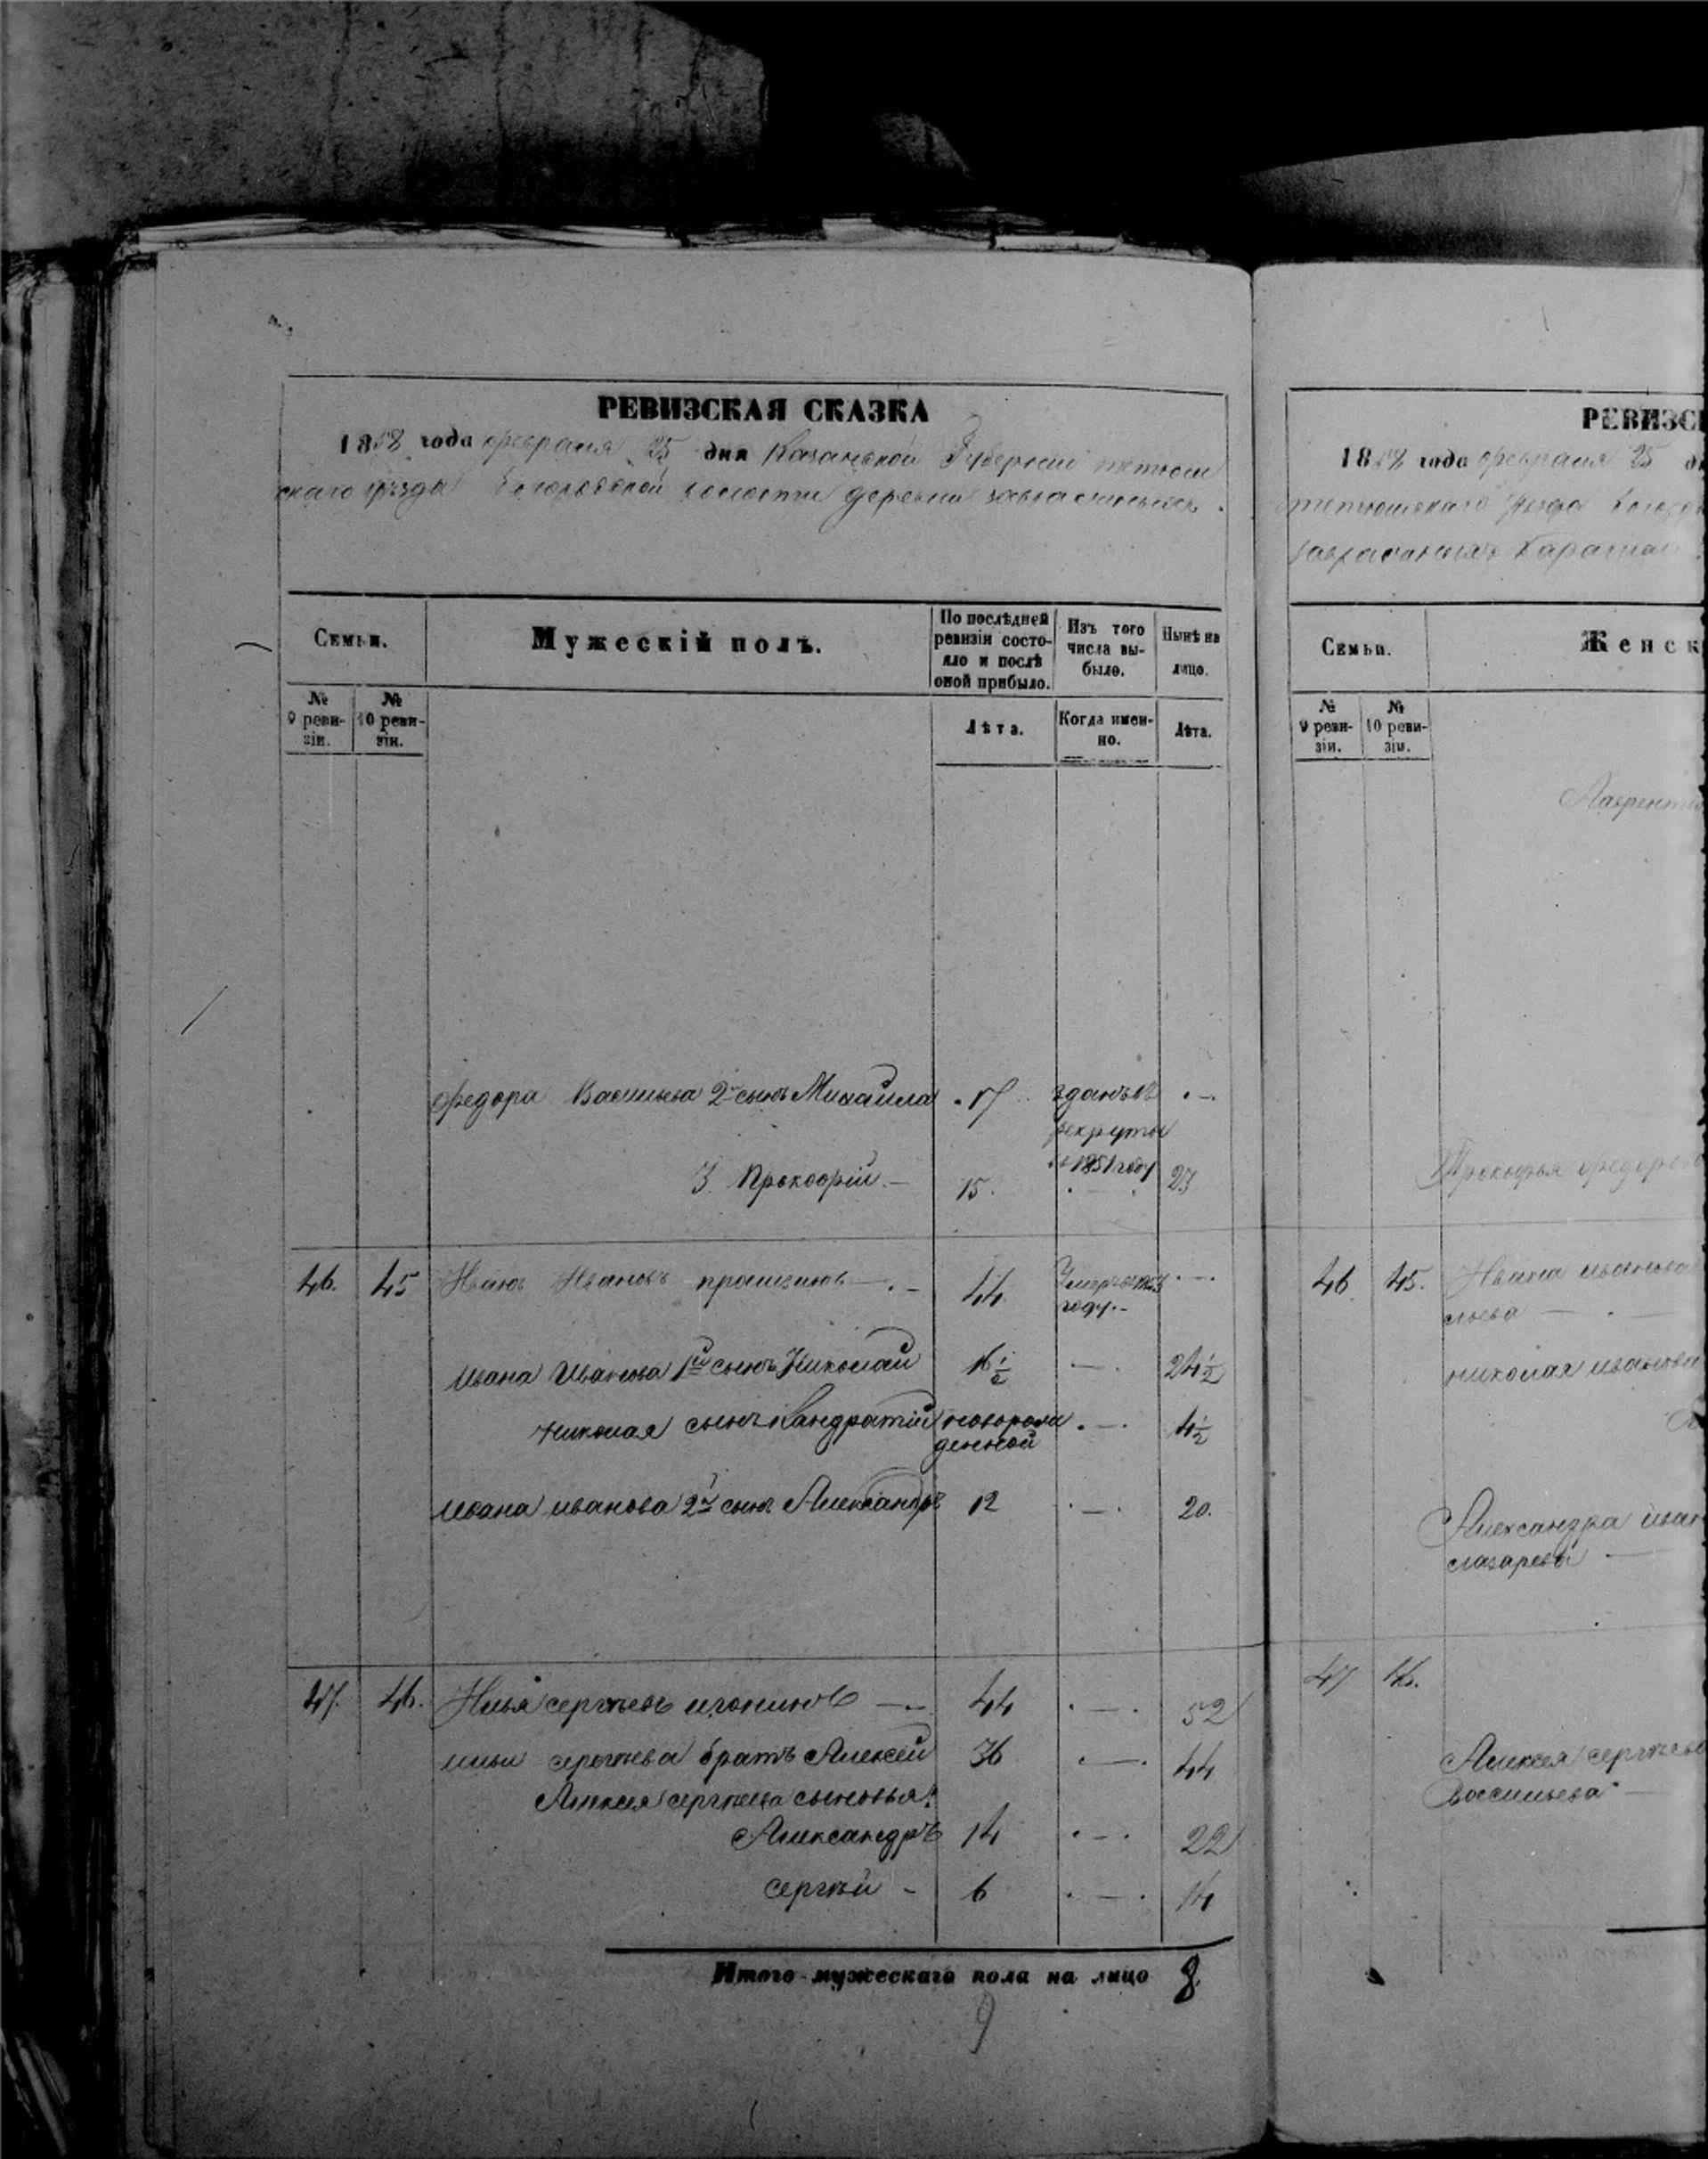 РЕВИЗСКАЯ СКАЗКА
1858 года февраля 25 дня Казанской Губернии тетюш
скаго уезда Богородской волости деревни
Семьи.
Мужескій полъ.
По послѣдней ревизіи состо-
яло и послѣ
оной прибыло.
Изъ того
числа вы-
было.
Нынѣ на
лицо.
№
9 реви-
зіи.
№
10 реви-
зіи.
Лѣта.
Когда имен-
но.
Лѣта.
Федора Васильева 2й сынъ Михаила 17 зданъ въ
рекруты
в 1851 году
3 Прокофій 15 23
46. 45 Иванъ Ивановъ 44 Умеръ 1853
году
Ивана Иванова 1й сынъ Николай 16½ 24½
Николая сынъ Кандратій новорож
денной 4½
Ивана иванова 2й сынъ Александръ 12 20.
47. 46. Илья сергѣевъ игонинъ 44 52
ильи сергѣева братъ Алексей 36 44
Алексея сергѣева сыновья:
Александръ 14 22
сергѣй 6 14
Итого мужескаго пола на лицо 8
9
РЕВИЗС
1858 года февраля 25 д
тетюшскаго уезда
Семьи.
Женск
№
9 реви-
зіи.
№
10 реви-
зіи.
Лаврентья
Прокофья федоров
46 45. Ивана иванова
николая иванова
Александра иван
лазарева
47 46.
Алексея сергѣев
Васильева